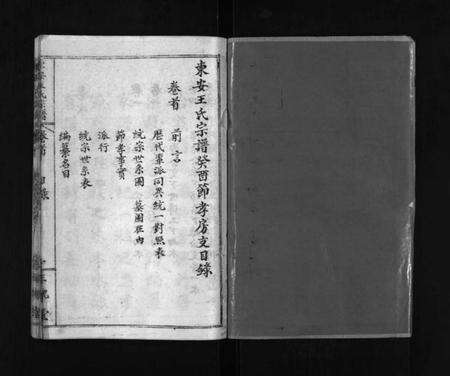 東安王氏宗譜癸酉節孝房支目錄
卷首
前言
歷代軍派同異統一對照表
統宗世系圖 墓圖在內
節孝事實
派行
統宗世系表
編纂名目